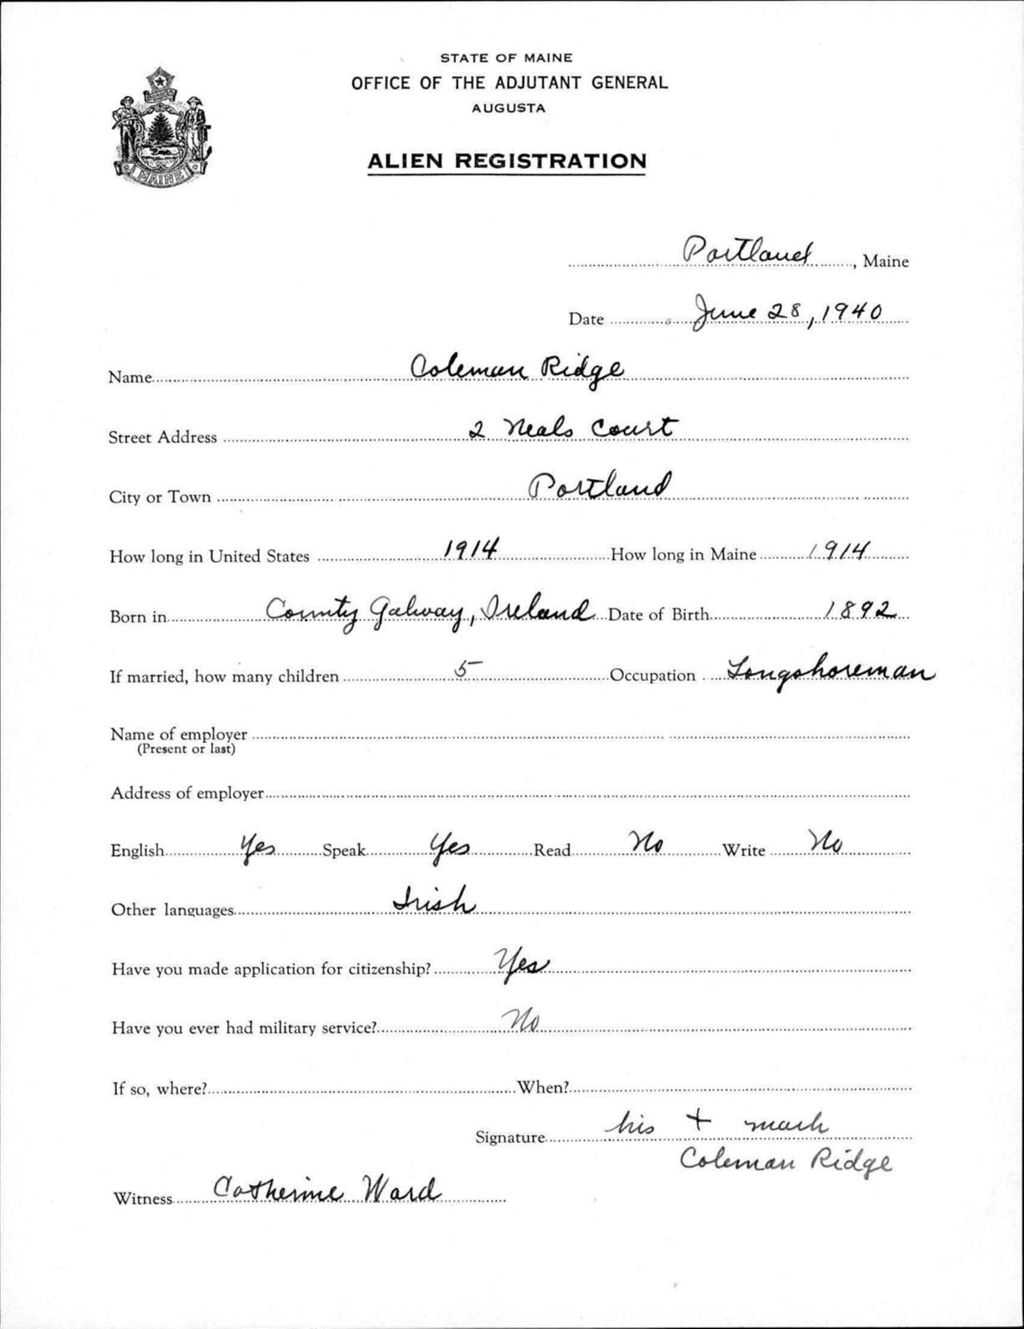 STATE OF MAINE
OFFICE OF THE ADJUTANT GENERAL
AUGUSTA
ALIEN REGISTRATION
MAINE
Portland, Maine
Date June 28, 1940
Name Coleman Ridge
Street Address 2 Neals Court
City or Town Portland
How long in United States 1914 How long in Maine 1914
Born in County Galway, Ireland Date of Birth 1892
If married, how many children 5 Occupation Longshoreman
Name of employer
(Present or last)
Address of employer
English Yes Speak Yes Read No Write No
Other languages Irish
Have you made application for citizenship? Yes
Have you ever had military service? No
If so, where? When?
Signature his + mark
Coleman Ridge
Witness Catherine Ward